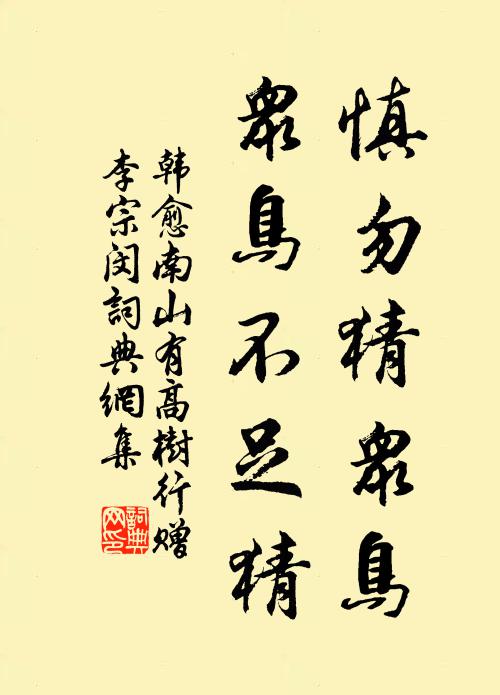 慎勿猜衆鳥
衆鳥不足猜
韩愈南山有高樹行赠
李宗闵詞典網集
詞典
网印